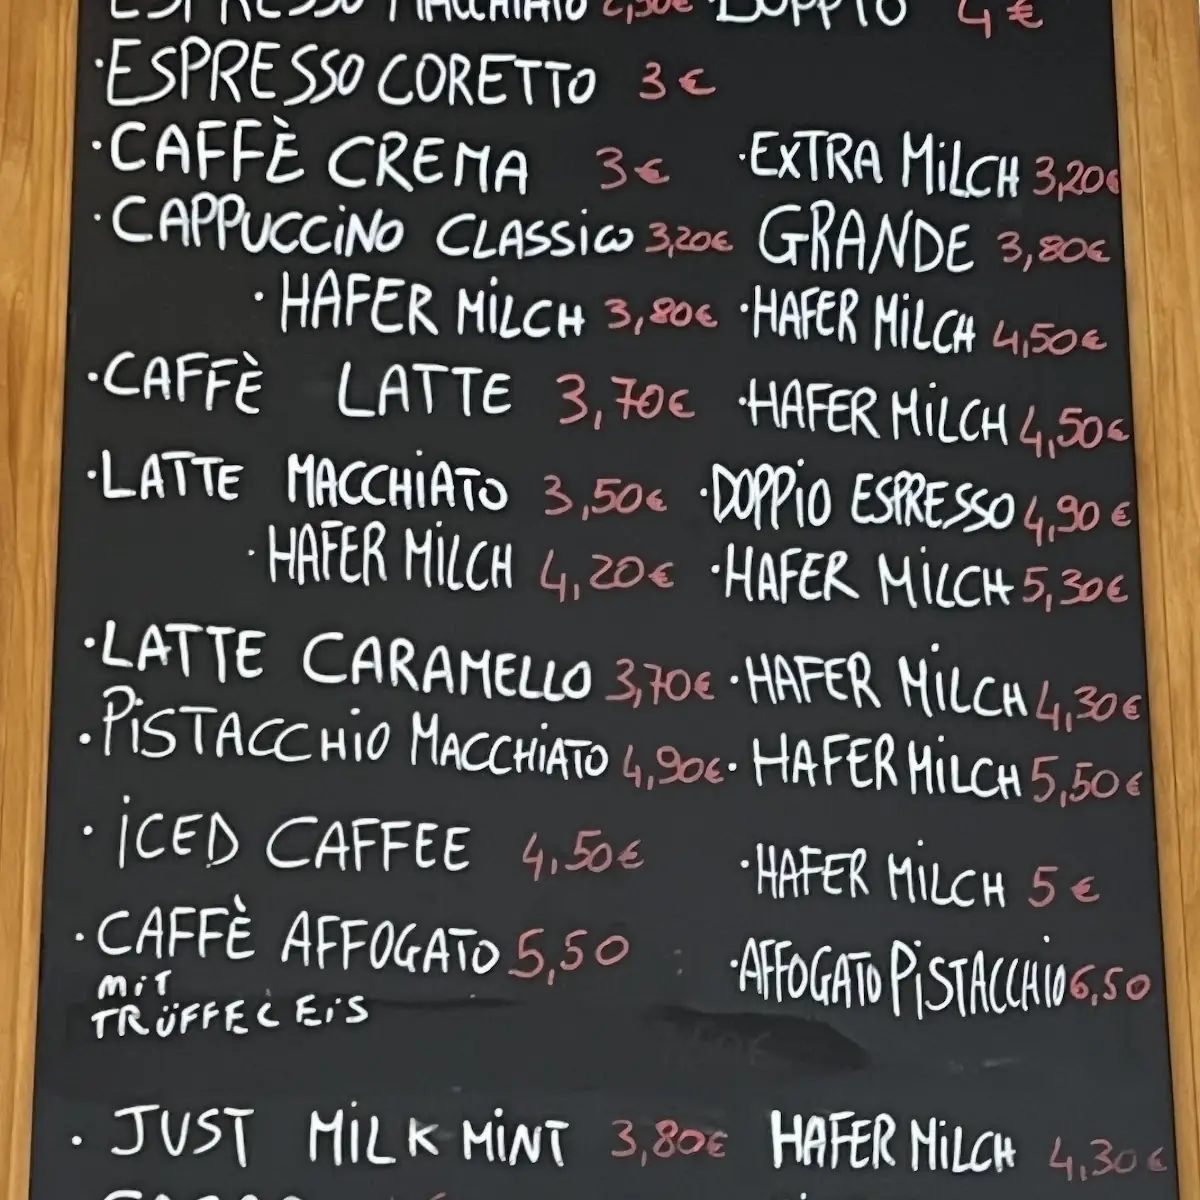 ESPRESSO MACCHIATO 2,50€ · DOPPIO 4€
· ESPRESSO CORETTO 3€
· CAFFÈ CREMA 3€ · EXTRA MiLCH 3,20€
· CAPPUCCiNO CLASSiCO 3,20€ GRANDE 3,80€
· HAFER MiLCH 3,80€ · HAFER MiLCH 4,50€
· CAFFÈ LATTE 3,70€ · HAFER MiLCH 4,50€
· LATTE MACCHiATO 3,50€ · DOPPiO ESPRESSO 4,90€
· HAFER MiLCH 4,20€ · HAFER MiLCH 5,30€
· LATTE CARAMELLO 3,70€ · HAFER MiLCH 4,30€
· PiSTACCHiO MACCHiATO 4,90€ · HAFER MiLCH 5,50€
· iCED CAFFEE 4,50€ · HAFER MiLCH 5€
· CAFFÈ AFFOGATO 5,50 · AFFOGATO PiSTACCHiO 6,50
MiT
TRÜFFEL EiS
· JUST MiLK MiNT 3,80€ HAFER MiLCH 4,30€